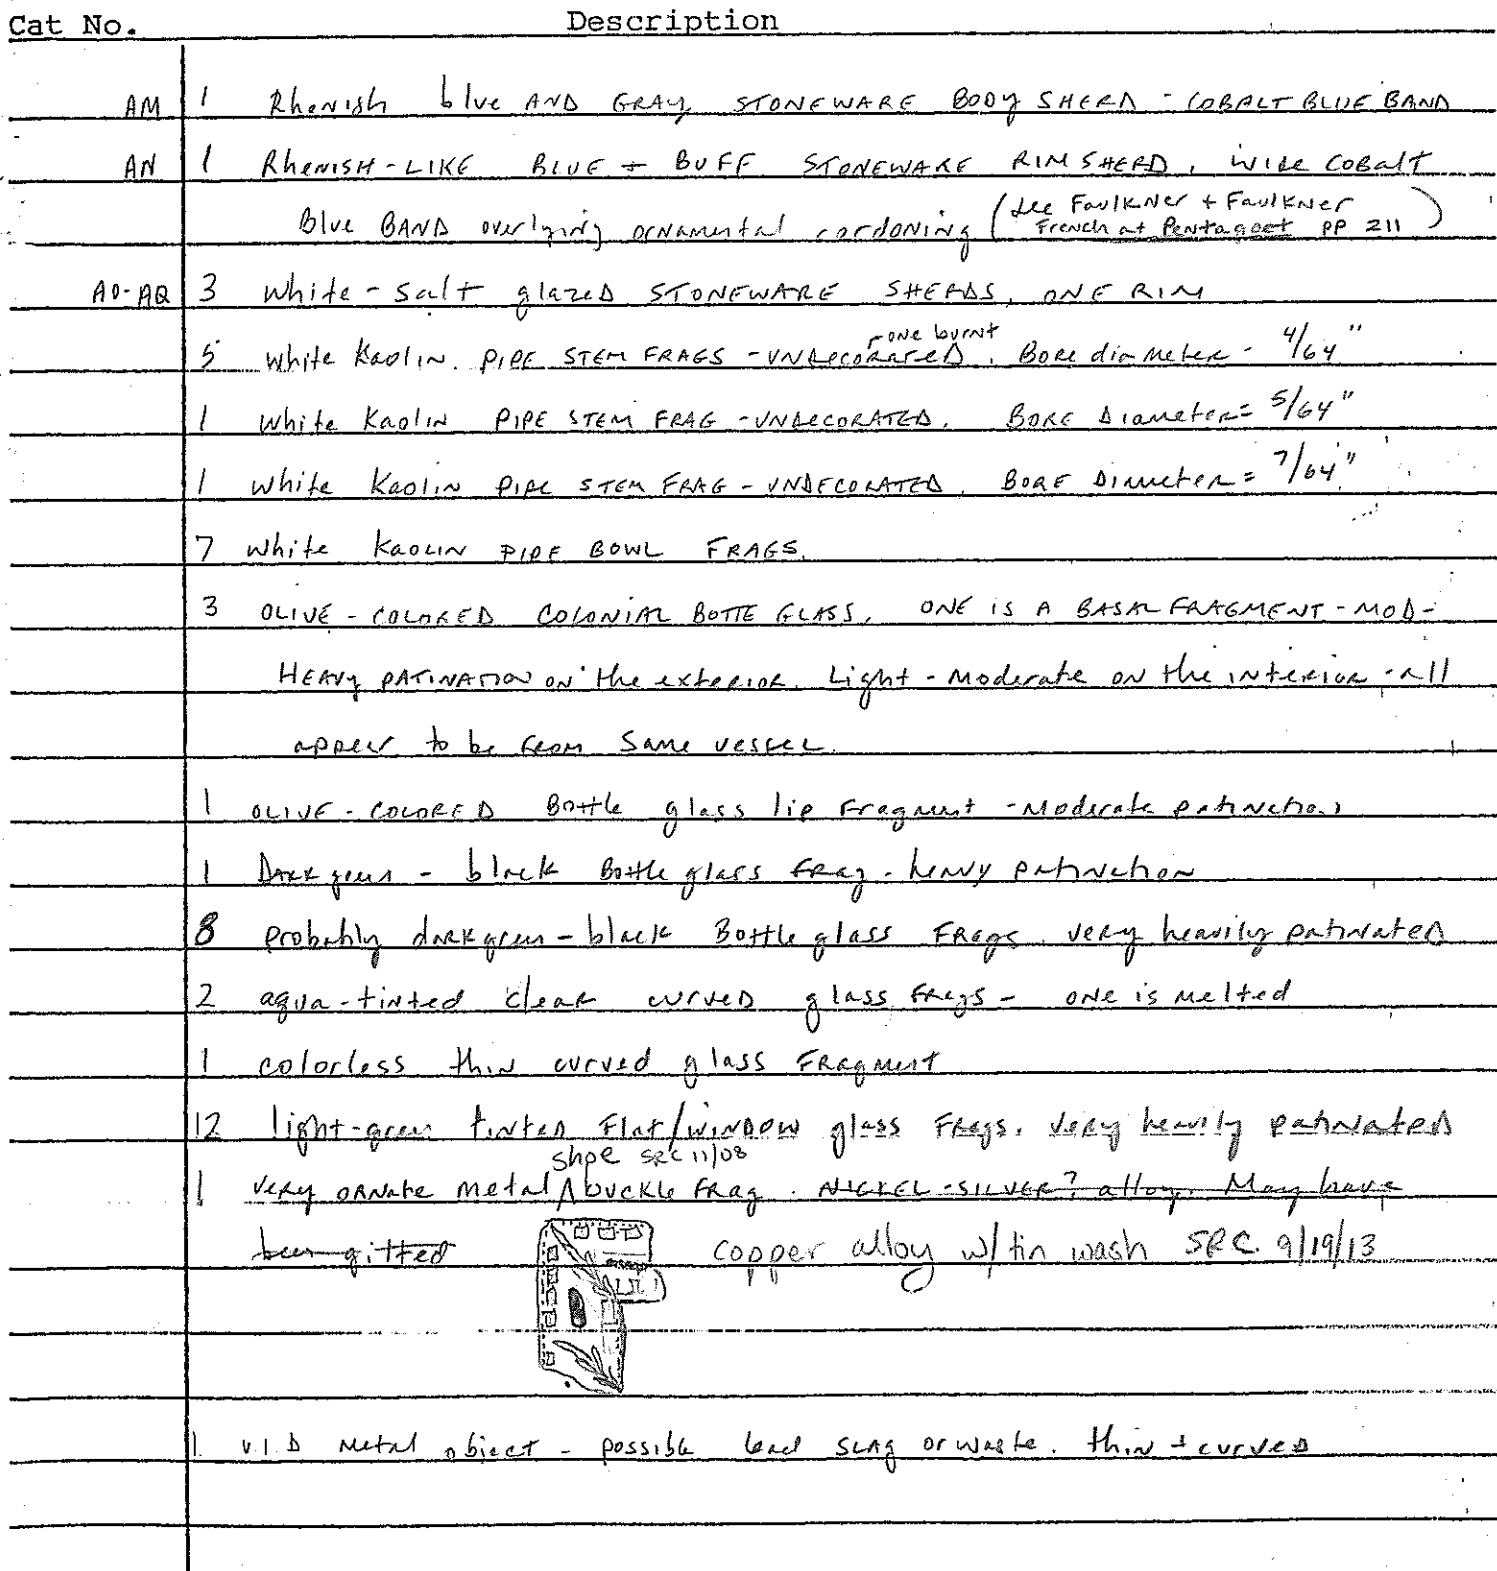 Cat No. Description
AM 1 Rhenish blue AND GRAY STONEWARE BODY SHERD - COBALT BLUE BAND
AN 1 Rhenish-LIKE BLUE + BUFF STONEWARE RIM SHERD, WIDE COBALT
Blue BAND overlying ornamental cordoning (see Faulkner + Faulkner
French at Pentagoet pp 211)
AO-AQ 3 white-salt glazed STONEWARE SHERDS, ONE RIM
one burnt
5 white Kaolin PIPE STEM FRAGS - UNDECORATED, Bore diameter - 4/64"
1 white Kaolin PIPE STEM FRAG - UNDECORATED. BORE Diameter = 5/64"
1 white Kaolin PIPE STEM FRAG - UNDECORATED, BORE Diameter = 7/64"
7 white KAOLIN PIPE BOWL FRAGS.
3 OLIVE-COLORED COLONIAL BOTTE GLASS, ONE IS A BASAL FRAGMENT - MOD-
HEAVY PATINATION ON the exterior. Light-Moderate on the interior - all
appear to be from same vessel.
1 OLIVE-COLORED Bottle glass lip fragment - Moderate patination
1 Dark green - black Bottle glass frag - heavy patination
8 probably dark green - black Bottle glass FRAGS. very heavily patinated
2 aqua-tinted clear curved glass frags - one is melted
1 colorless thin curved glass FRAGMENT
12 light-green tinted Flat/WINDOW glass Frags. Very heavily patinated
shoe SRC 11/08
1 Very ornate metal ∧ buckle Frag. NICKEL-SILVER? alloy. May have
been gitted copper alloy w/ tin wash SRC 9/19/13
1 U.I.D Metal object - possible lead SLAG or waste. thin + curved